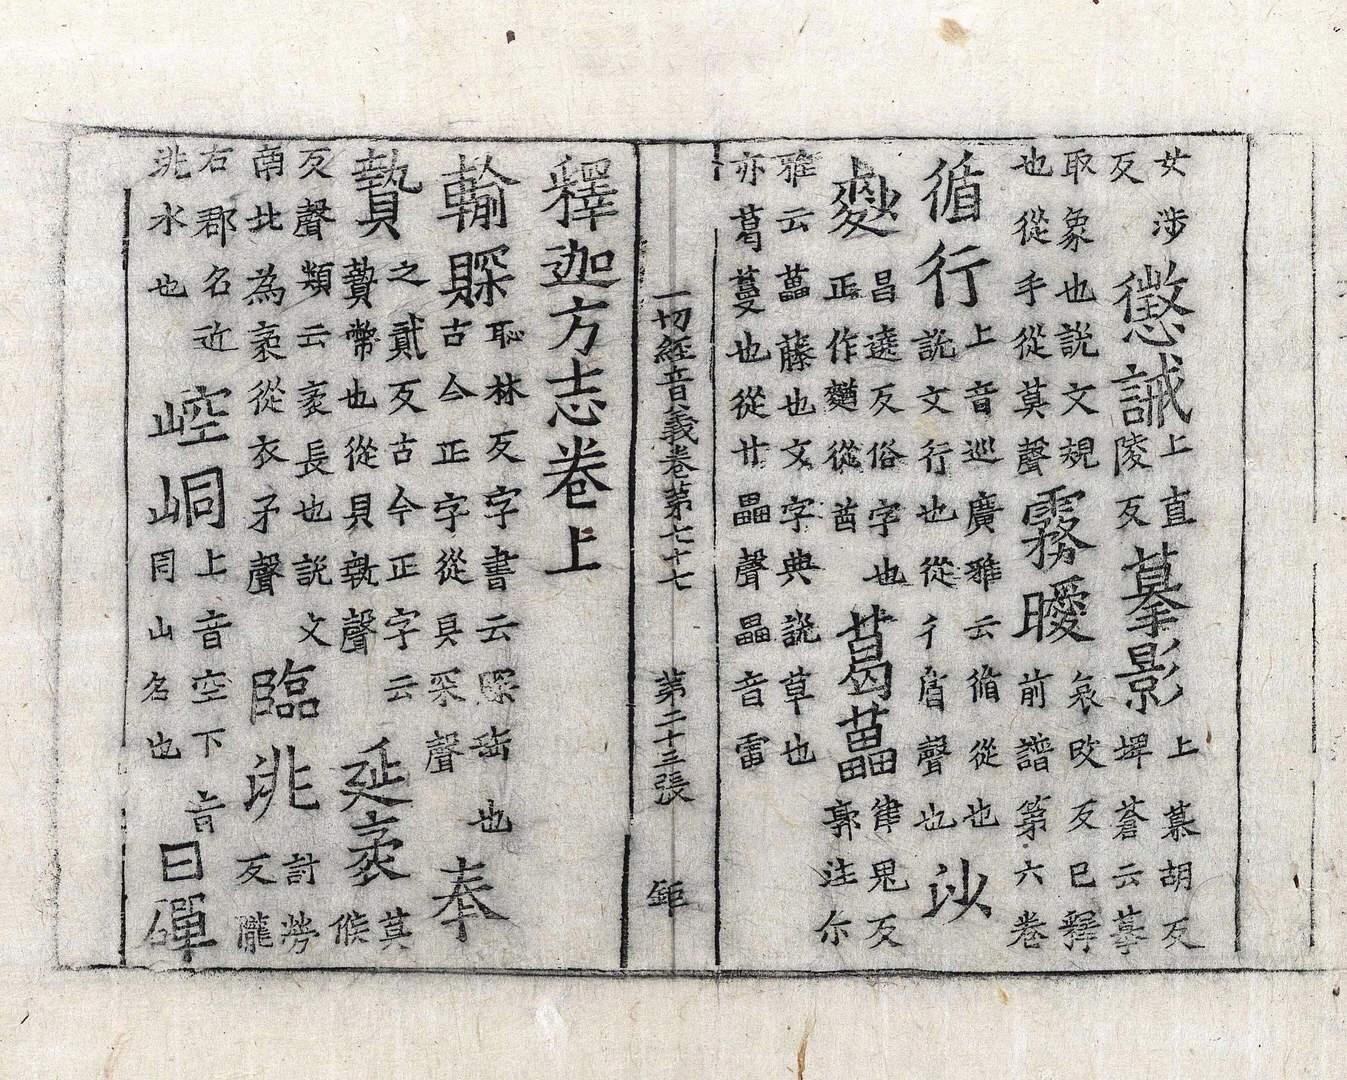 女涉反懲誡上直陵反摹影上慕胡反埤蒼云摹
取象也說文規也從手從莫聲霧曖哀改反已釋前譜第六卷
循行上音巡廣雅云循從也說文行也從彳盾聲也沙
麨昌遶反俗字也正作䴬從酋葛藟律鬼反郭注尔
雅云藟藤也文字典說草也亦葛蔓也從廿畾聲畾音雷
一切經音義卷第七十七 第二十三張 鉅
釋迦方志卷上
輸賝恥林反字書云賝也古今正字從貝罙聲奉
贄之貳反古今正字云贄幣也從貝執聲延袤莫候
反聲類云袤長也說文南北為袤從衣矛聲臨洮討勞反隴
右郡名近洮水也崆峒上音空下音同山名也曰磾